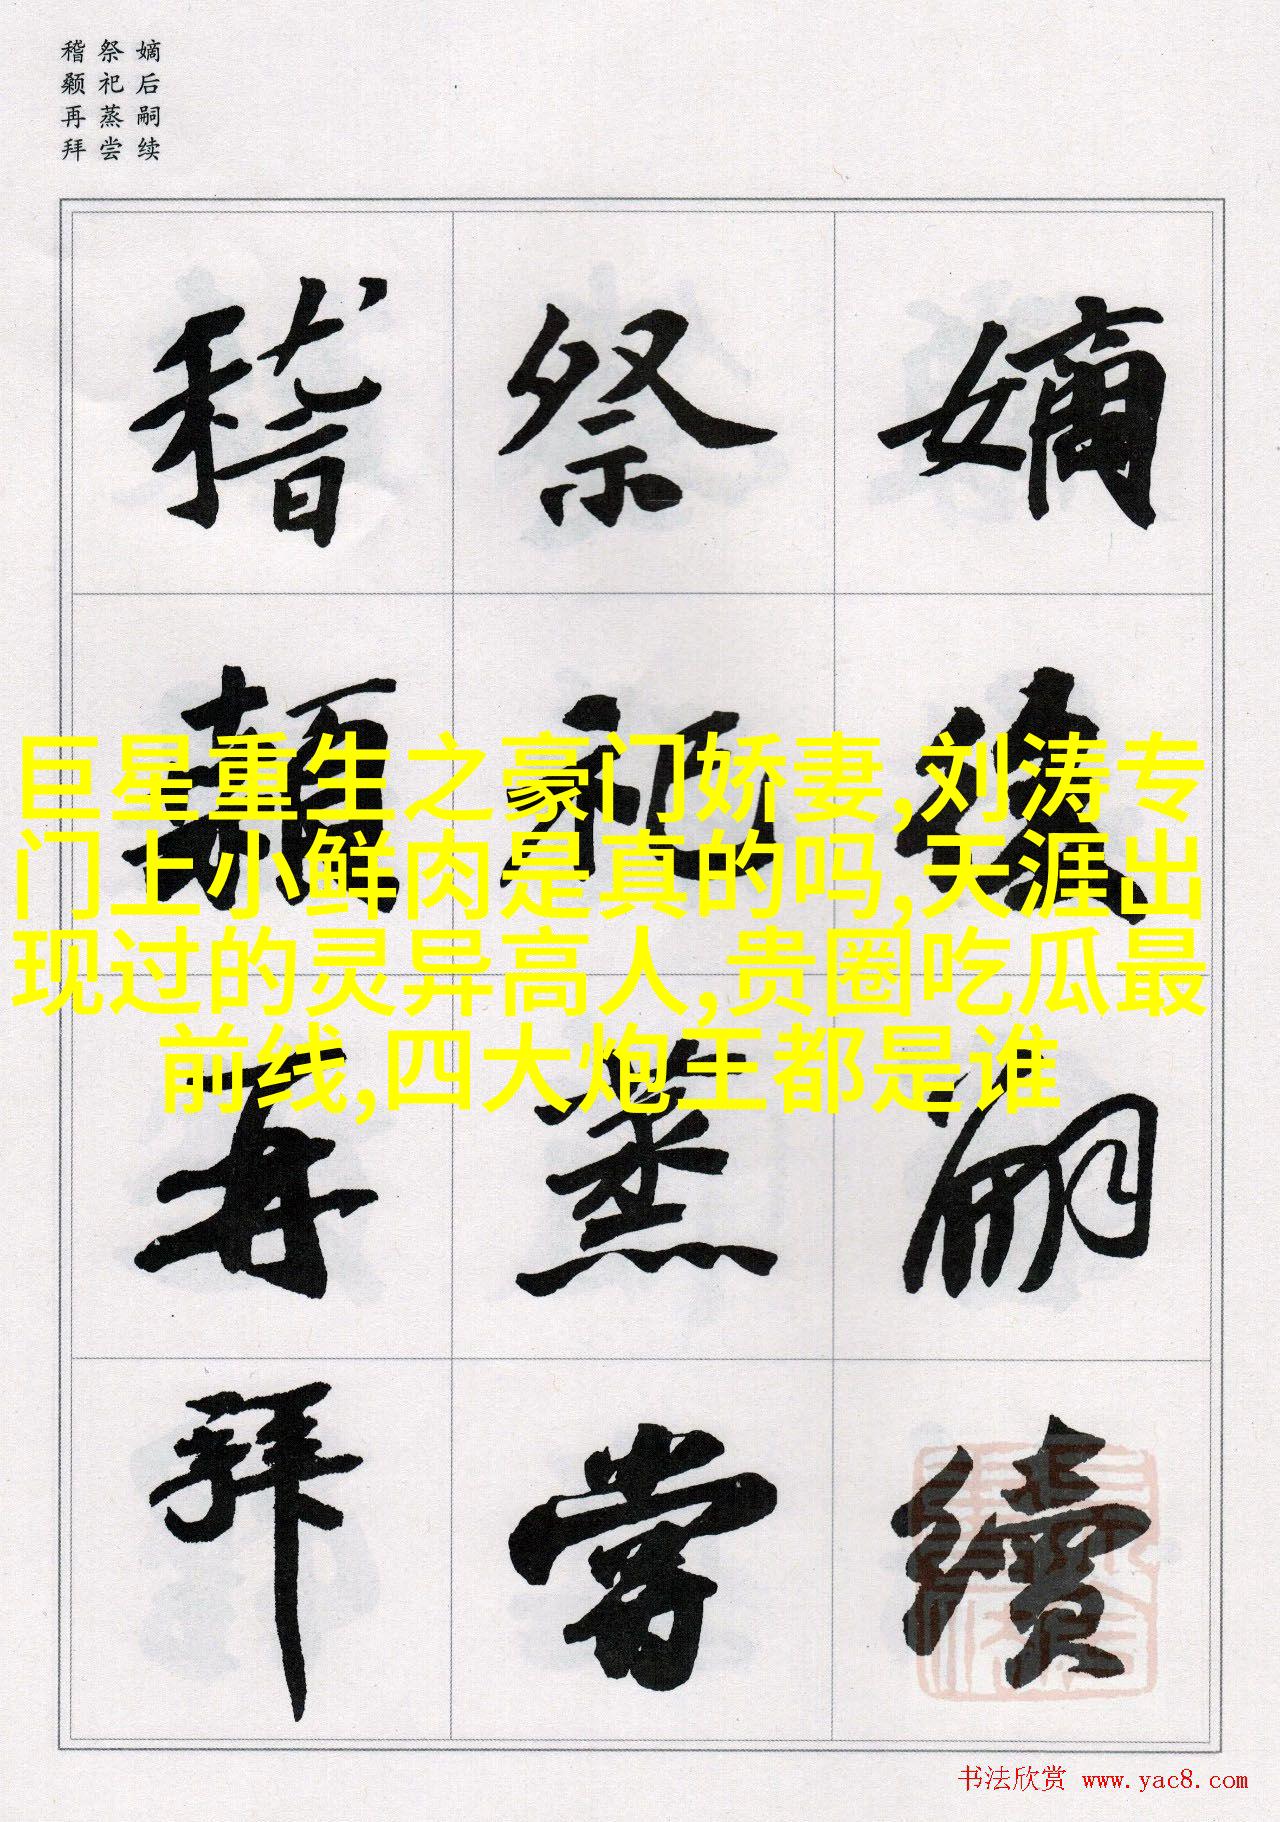 嫡后嗣续
祭祀蒸尝
稽颡再拜
嫡後嗣續
祭祀蒸嘗
稽顙再拜
巨星重生之豪门娇妻,刘涛专
门上小鲜肉是真的吗,天涯出
现过的灵异高人,贵圈吃瓜最
前线,四大炮王都是谁
书法欣赏 www.yac8.com